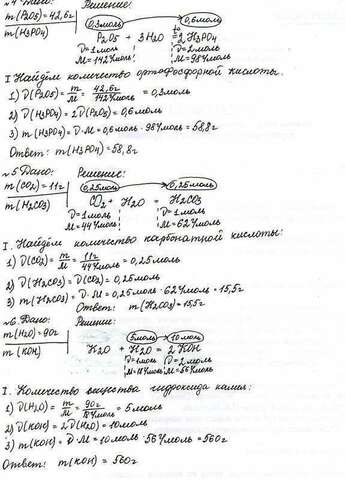 ~4 Дано: Решение:
m(P2O5)=42,6г 0,3моль 0,6моль
m(H3PO4) P2O5 + 3H2O t= 2H3PO4
ν=1моль ν=2моль
M=142г/моль M=98г/моль
I Найдём количество ортофосфорной кислоты.
1) ν(P2O5)= m/M = 42,6г/142г/моль = 0,3моль
2) ν(H3PO4) = 2ν(P2O5)=0,6моль
3) m(H3PO4)=ν·M=0,6моль·98г/моль=58,8г
Ответ: m(H3PO4)=58,8г
~5 Дано: Решение:
m(CO2)=11г 0,25моль 0,25моль
m(H2CO3) CO2 + H2O = H2CO3
ν=1моль ν=1моль
M=44г/моль M=62г/моль
I. Найдём количество карбонатной кислоты:
1) ν(CO2)= m/M = 11г/44г/моль =0,25моль
2) ν(H2CO3)=ν(CO2)=0,25моль
3) m(H2CO3)=ν·M=0,25моль·62г/моль=15,5г
Ответ: m(H2CO3)=15,5г
~6. Дано: Решение:
m(H2O)=90г 5моль 10моль
m(KOH) H2O = 2KOH
ν=1моль ν=2моль
M=18г/моль M=56г/моль
I. Количество вещества гидроксида калия:
1) ν(H2O)= m/M = 90г/18г/моль =5моль
2) ν(KOH)=2ν(H2O)=10моль
3) m(KOH)=ν·M=10моль·56г/моль=560г
Ответ: m(KOH)=560г